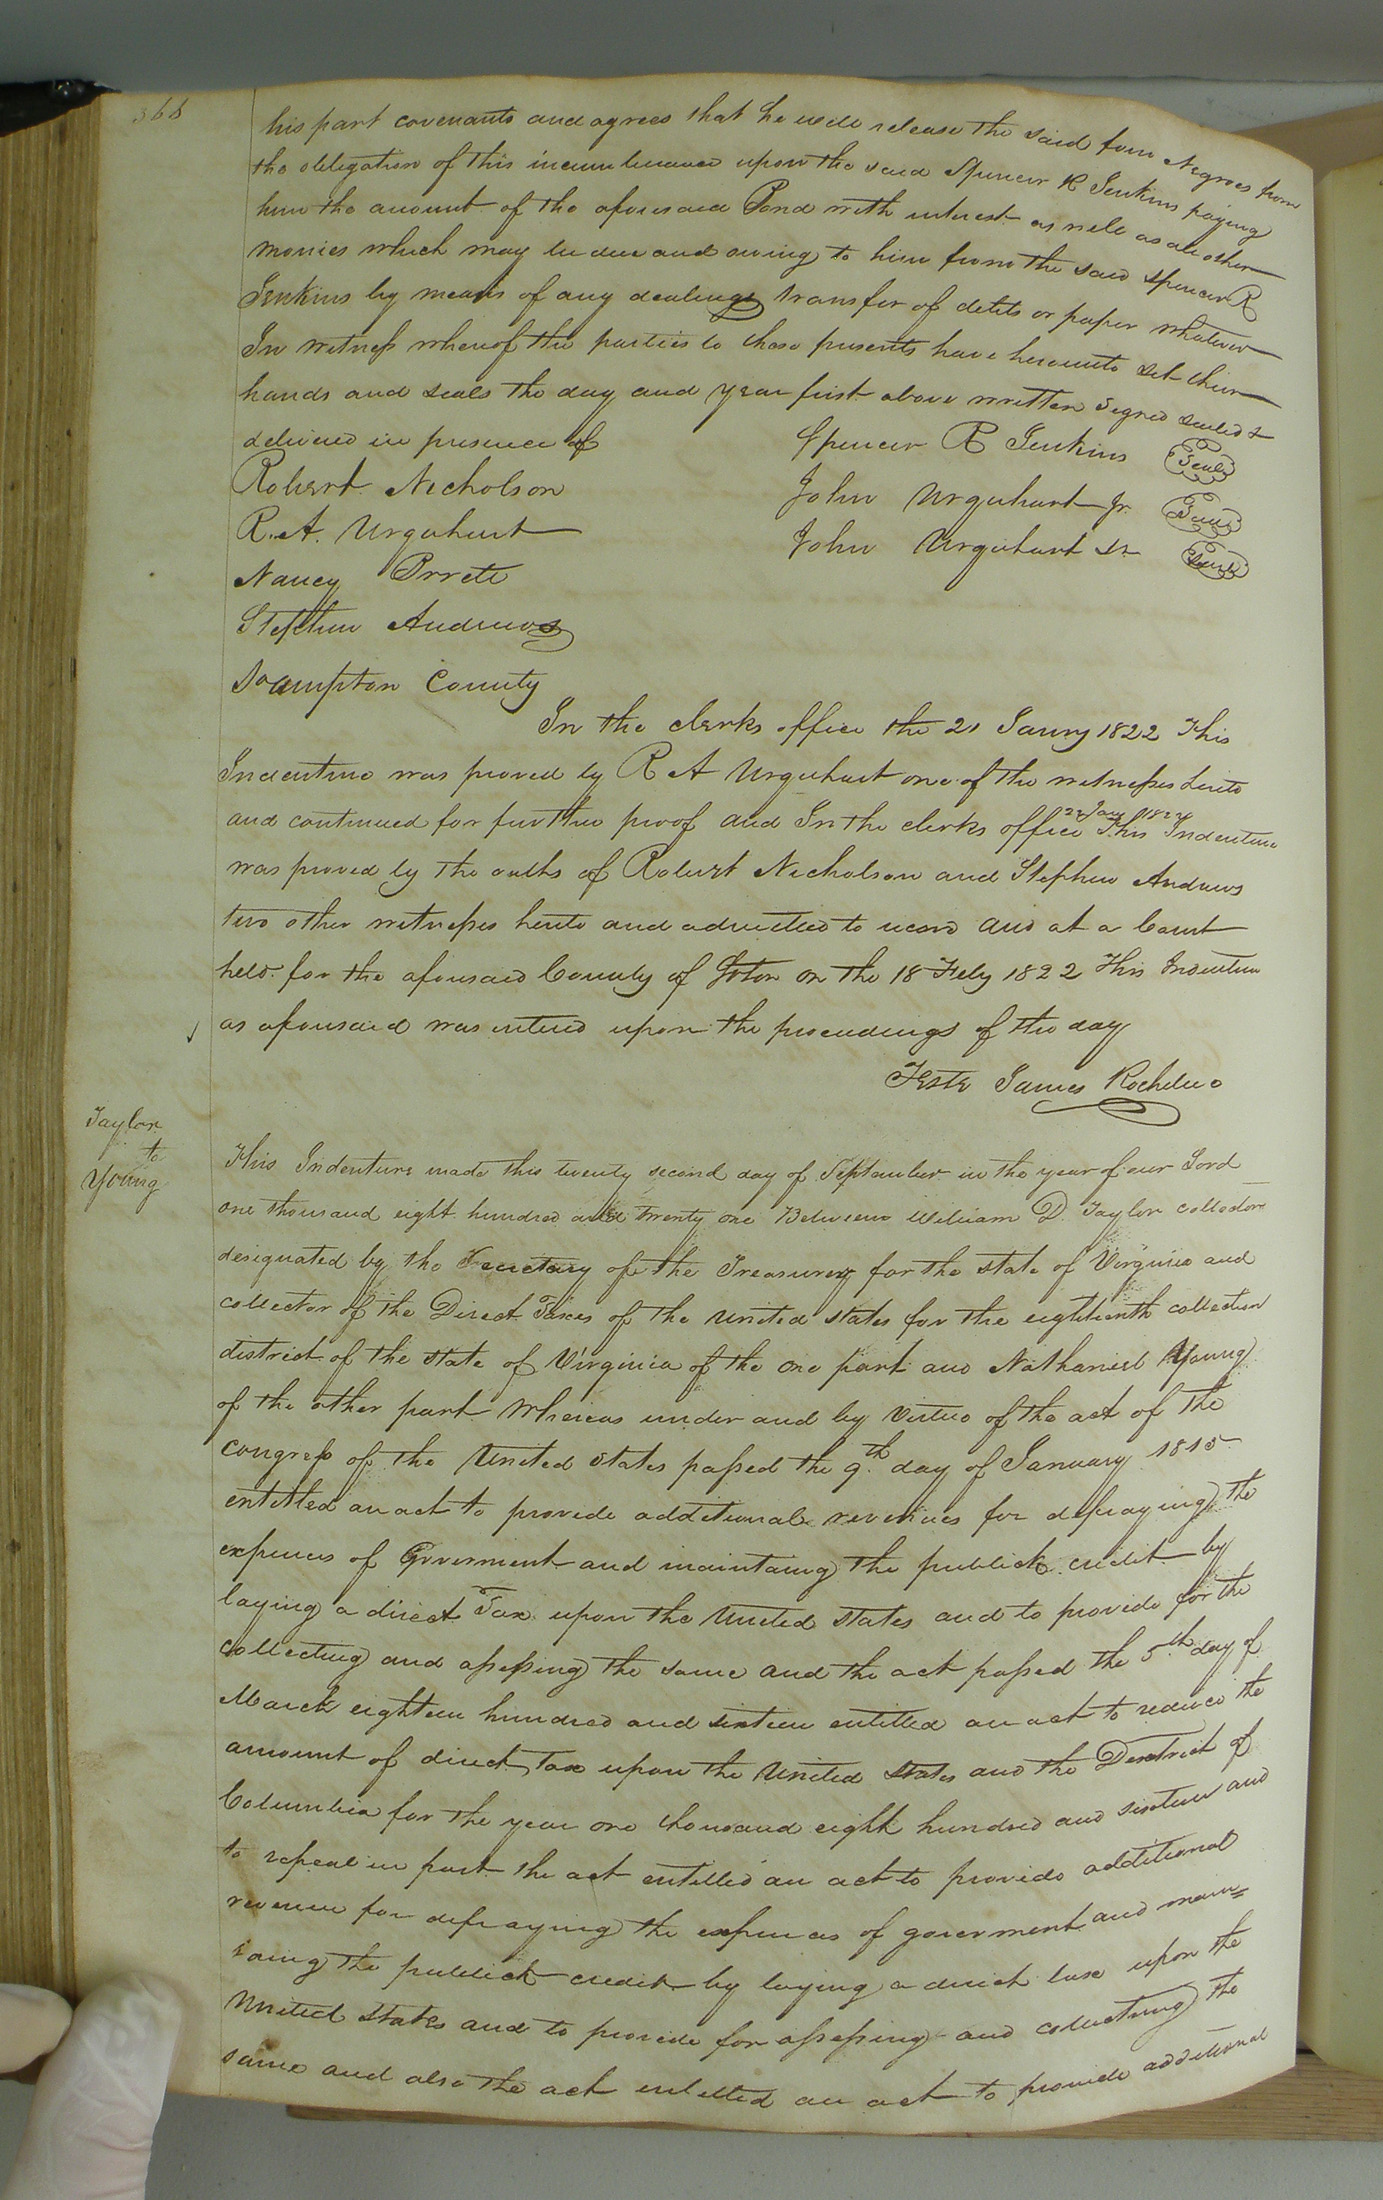 368
his part covenants and agrees that he will release the said four Negroes from
the obligation of this incumberance upon the said Spencer R Jenkins paying
him the amount of the aforesaid Bond with interest as well as all other
monies which may be due and owing to him from the said Spencer R
Jenkins by means of any dealings transfer of debts or paper whatever
In witness whereof the parties to these presents have hereunto set their
hands and seals the day and year first above written signed sealed &
delivered in presence of
Spencer R Jenkins Seal
Robert Nicholson
John Urquhart Jr. Seal
R. A. Urquhart
John Urquhart Sr Seal
Nancy
Stephen Andrews
Soampton County
In the clerks office the 21 Janry 1822 This
Indenture was proved by R A Urquhart one of the witnesses hereto
and continued for further proof and In the clerks office 22 Jany 1822 This Indenture
was proved by the oaths of Robert Nicholson and Stephen Andrews
two other witnesses hereto and admitted to record and at a Court
held for the aforesaid County of Soton on the 18 Feby 1822 This Indenture
as aforesaid was entered upon the proceedings of the day
Teste James Rochelle
Taylor
to
Young
This Indenture made this twenty second day of September in the year of our Lord
one thousand eight hundred and twenty one Between William D. Taylor collector
designated by the Secretary of the Treasurery for the state of Virginia and
collector of the Direct Taxes of the United States for the eighteenth collection
district of the state of Virginia of the one part and Nathaniel Young
of the other part Whereas under and by Virtue of the act of the
congress of the United States passed the 9th day of January 1815
entitled an act to provide additional revenues for defraying the
expences of Goverment and maintaing the publick credit by
laying a direct Tax upon the United States and to provide for the
collecting and assessing the same and the act passed the 5th day of
March eighteen hundred and sixteen entitled an act to reduce the
amount of direct tax upon the United States and the District of
Columbia for the year one thousand eight hundred and sixteen and
to repeal in part the act entitled an act to provide additional
revenue for defraying the expences of goverment and main=
taing the publick credit by laying a direct tax upon the
United States and to provide for assessing and collecting the
same and also the act entitled an act to provide additional